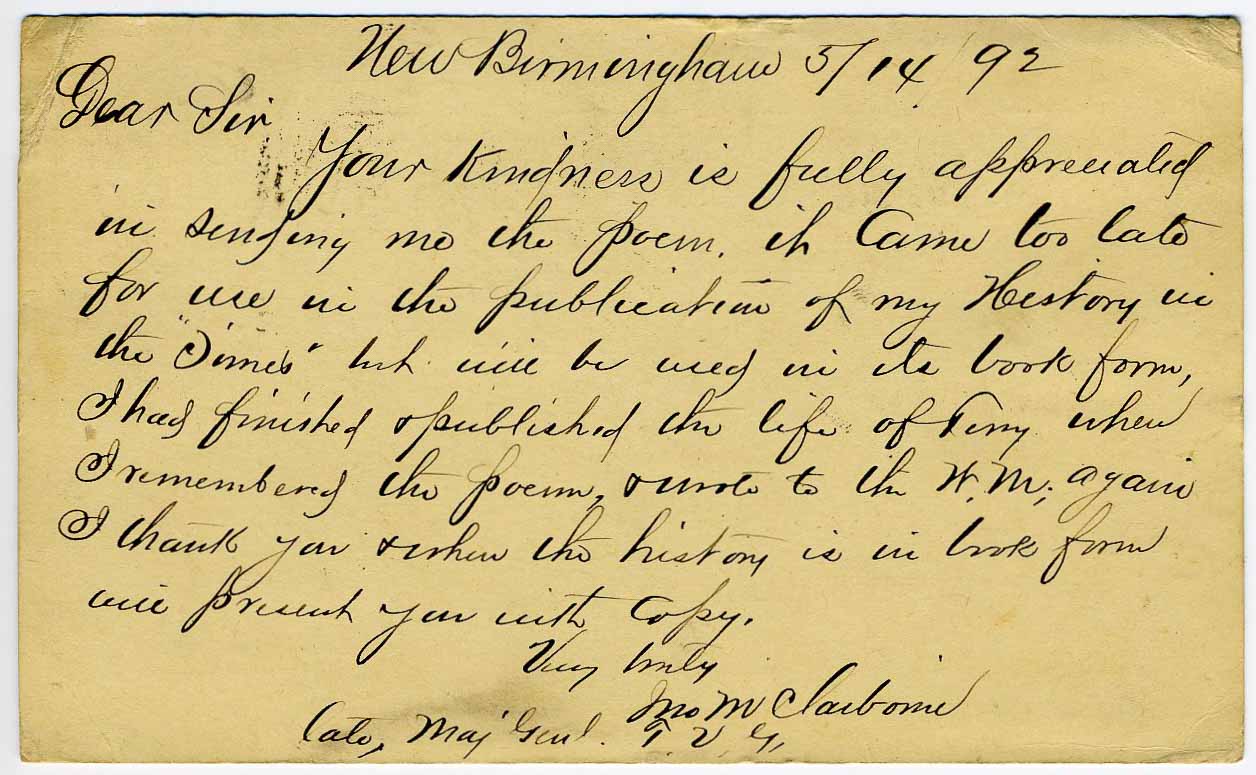 New Birmingham 5/14/92
Dear Sir
Your Kindness is fully appreciated
in sending me the poem, it Came too late
for use in the publication of my History in
the "Times" but will be used in its book form,
I had finished & published the life of Terry when
I remembered the poem, & wrote to the W. M; again
I thank you & when the history is in book form
will present you with Copy.
Very truly
Jno M Claiborne
Late, Maj Genl. T. V. G,